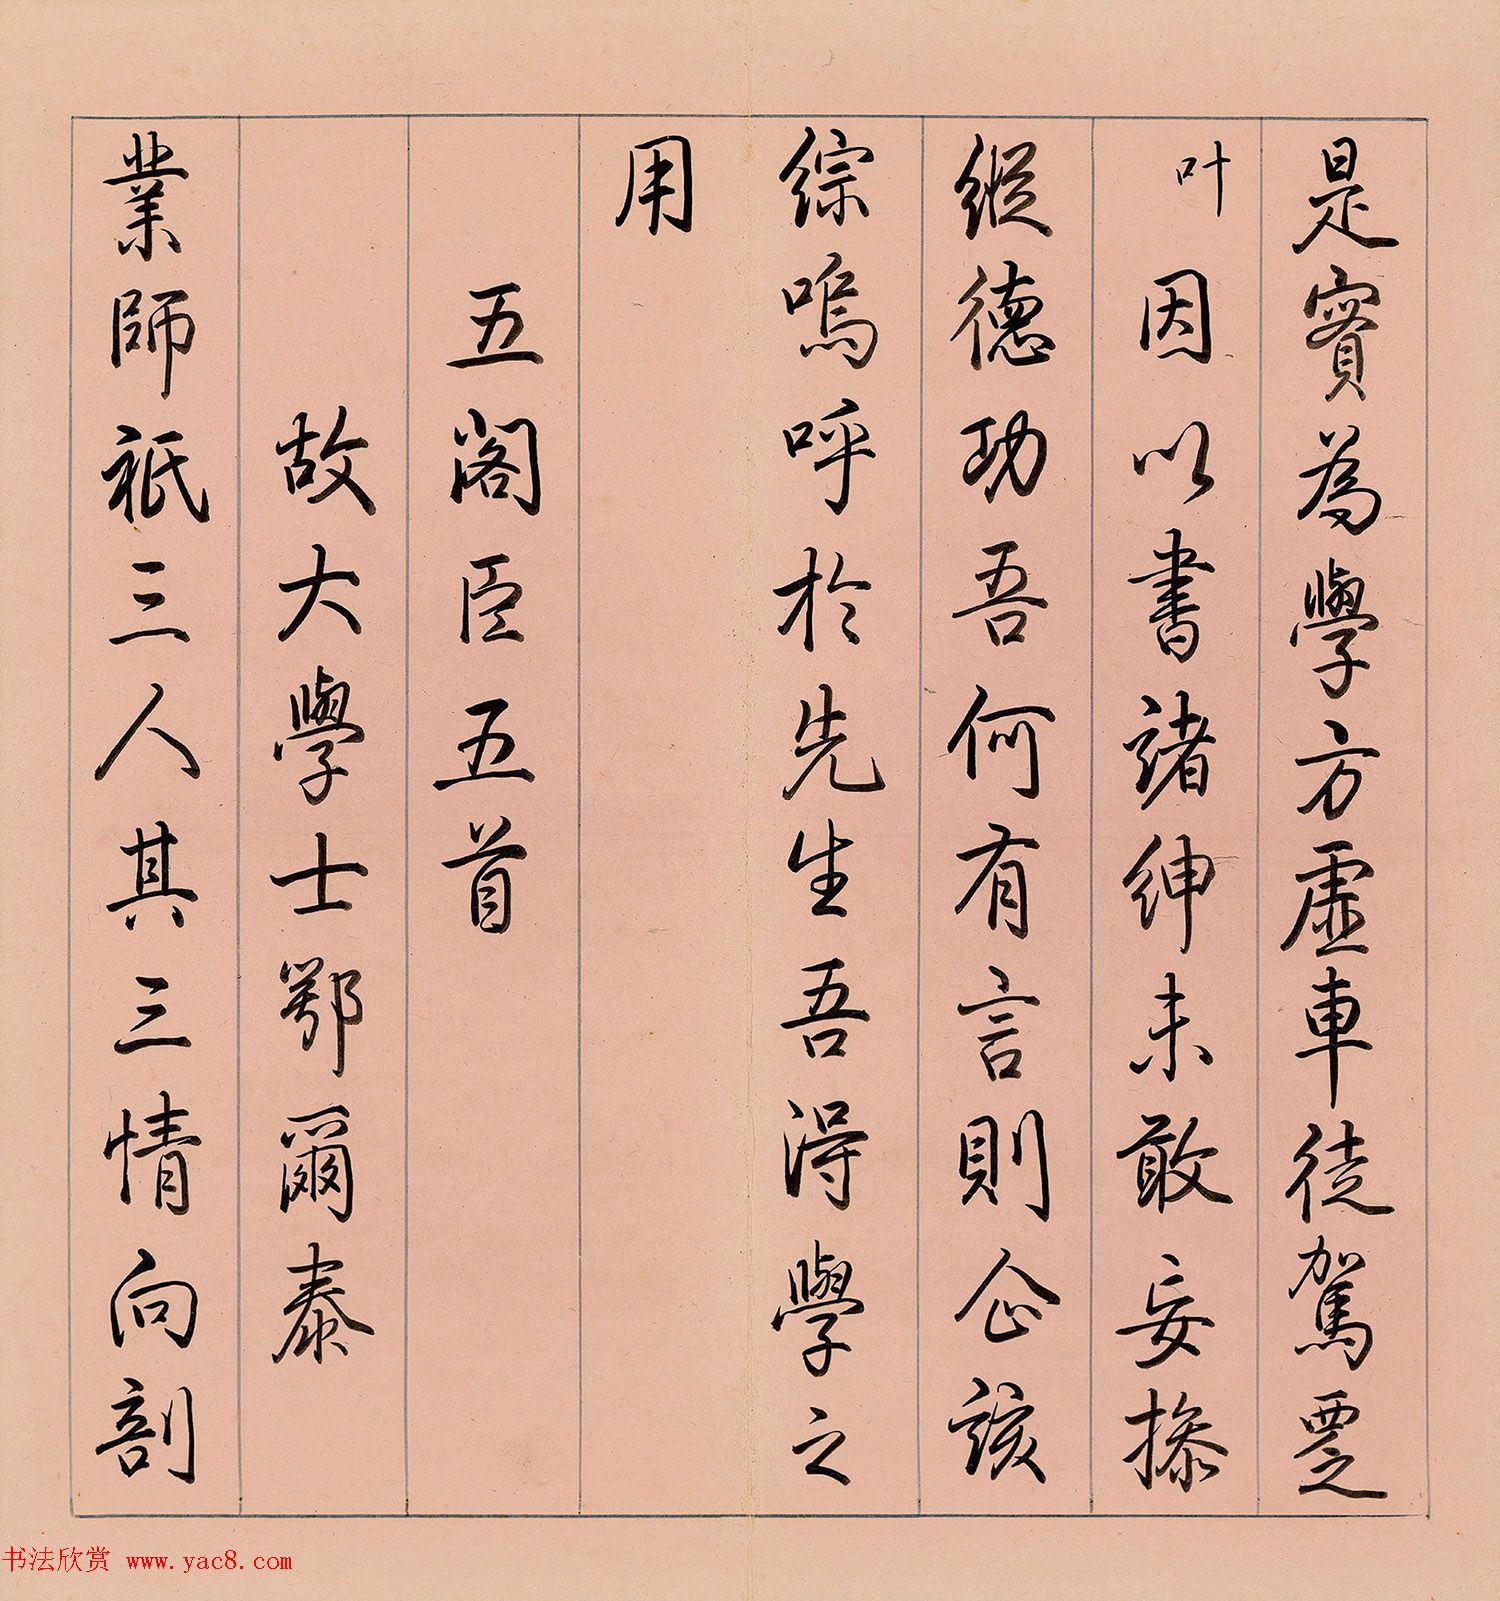 是實為學方虛車徒駕覂
叶因以書諸紳未敢妄操
縱德功吾何有言則企該
綜嗚呼於先生吾得學之
用
五閣臣五首
故大學士鄂爾泰
業師祇三人其三情向剖
书法欣赏 www.yac8.com